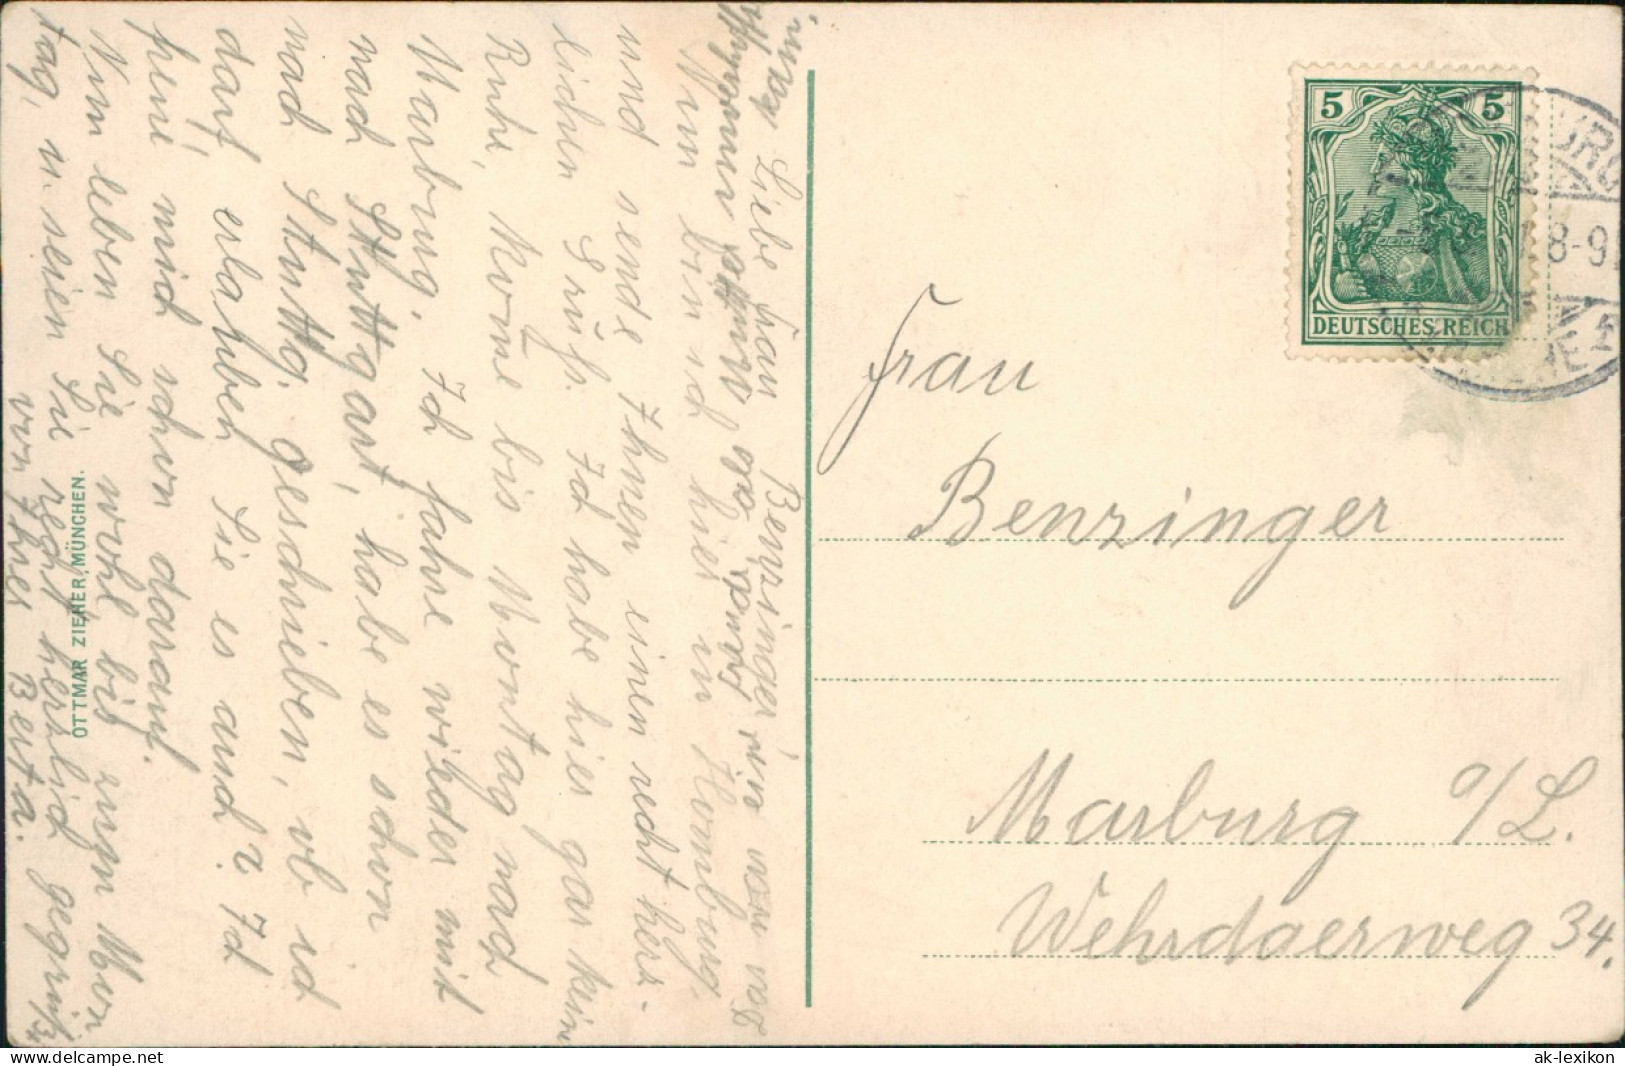 Liebe Frau Benzinger!
Nun bin ich hier in Homburg.
und sende Ihnen einen recht herz-
lichen Gruß. Ich habe hier gar kein
Ruhe, kome bis Montag nach
Marburg. Ich fahre wieder mit
nach Stuttgart, habe es schon
nach Stuttg. geschrieben, ob ich
darf erlauben Sie es auch? Ich
freue mich schon darauf.
Nun leben Sie wohl, bis zum Mon
tag, u. seien Sie recht herzlich gegrüßt
von Ihrer Berta.
OTTMAR ZIEHER, MÜNCHEN.
5 5
DEUTSCHES REICH
8-9
Frau
Benzinger
Marburg a/L.
Wehrdaerweg 34.
delcampe.net
ak-lexikon